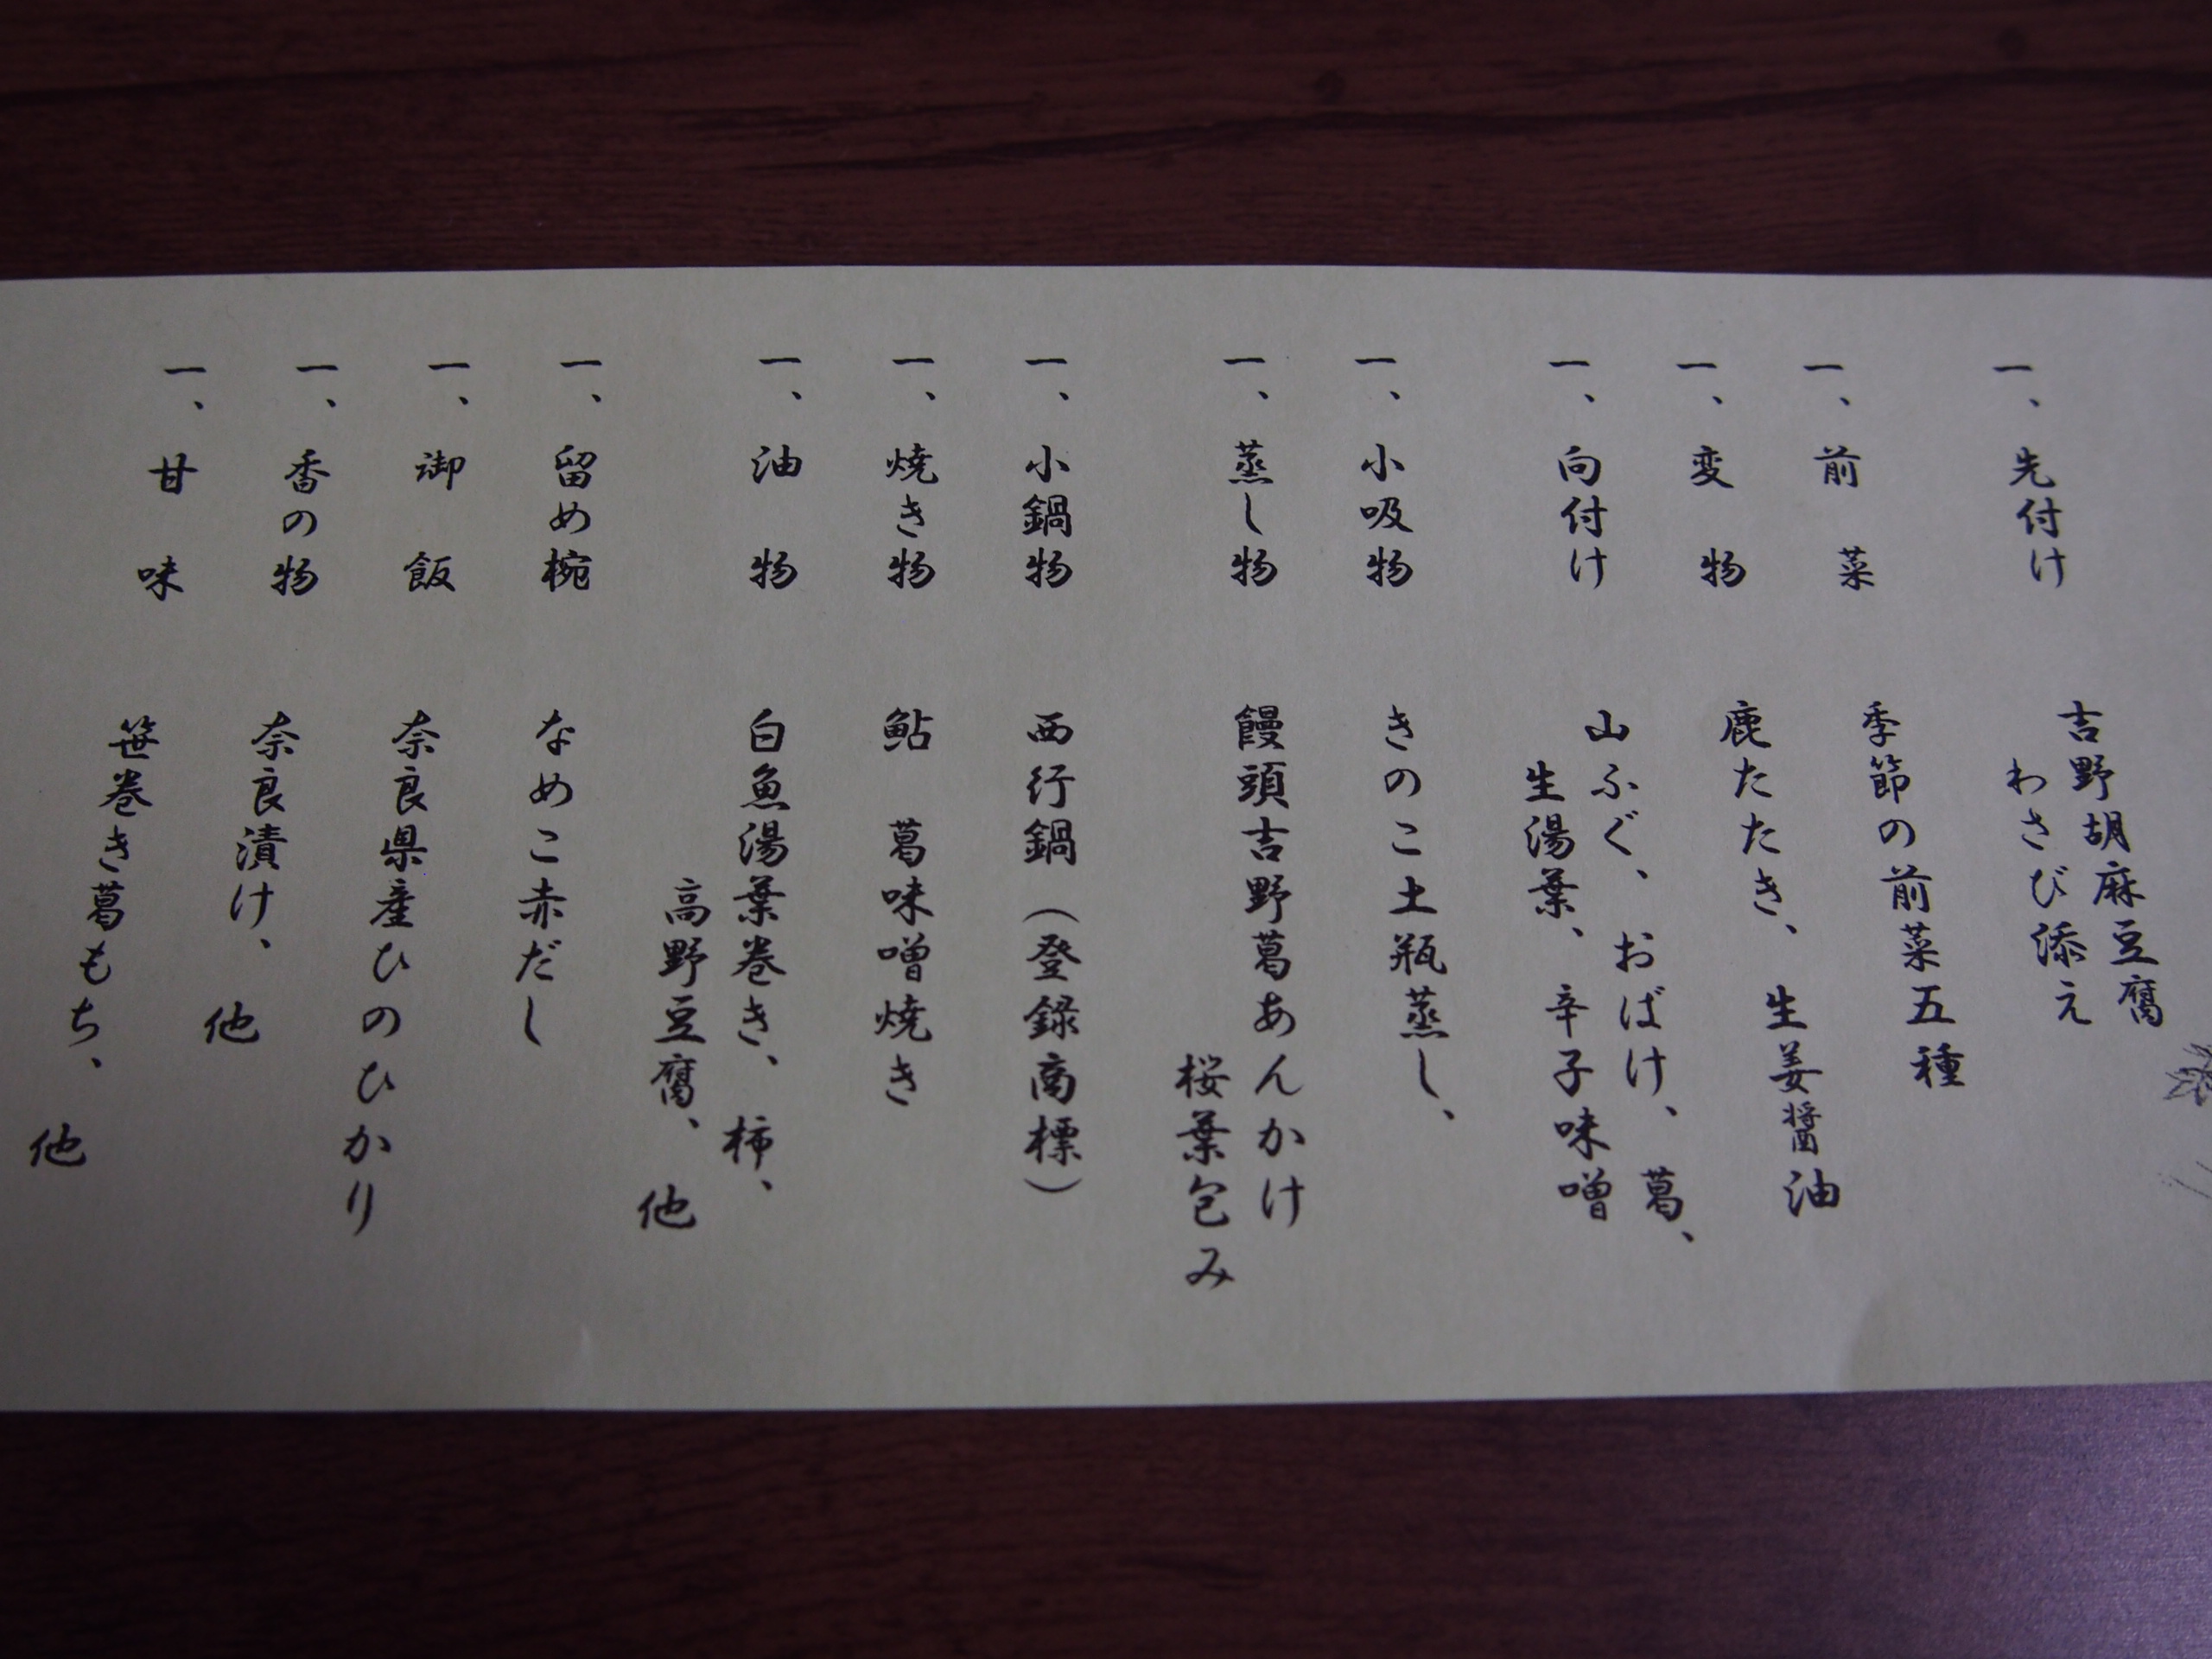 一、先付け　吉野胡麻豆腐
わさび添え
一、前　菜　季節の前菜五種
一、変　物　鹿たたき、生姜醤油
一、向付け　山ふぐ、おばけ、葛、
生湯葉、辛子味噌
一、小吸物　きのこ土瓶蒸し、
一、蒸し物　饅頭吉野葛あんかけ
桜葉包み
一、小鍋物　西行鍋（登録商標）
一、焼き物　鮎　葛味噌焼き
一、油　物　白魚湯葉巻き、柿、
高野豆腐、他
一、留め椀　なめこ赤だし
一、御　飯　奈良県産ひのひかり
一、香の物　奈良漬け、他
一、甘　味　笹巻き葛もち、他